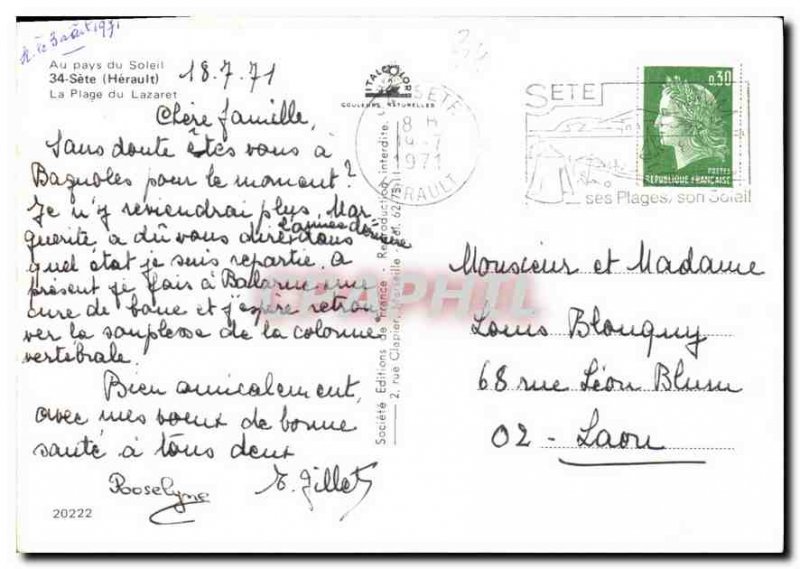 Au pays du Soleil
34-Sète (Hérault)
La Plage du Lazaret
18.7.71
Chère famille,
Sans doute êtes vous à
Bagnoles pour le moment?
Je n'y reviendrai plus, Mar
guerite a dû vous dire dans
l'année dernière
quel état je suis repartie. A
présent je fais à Balaruc une
cure de boue et j'espère retrou
ver la souplesse de la colonne
vertébrale.
Bien amicalement,
avec mes voeux de bonne
santé à tous deux
Roselyne
E. Gillet
20222
ITALCOLOR
COULEURS NATURELLES
Société Editions de France - Reproduction interdite.
2, rue Clapier, Marseille - Tél. 62/75-11
SETE
8 H
19-7
1971
HERAULT
SETE
ses Plages, son Soleil
0,30
POSTES
REPUBLIQUE FRANÇAISE
Monsieur et Madame
Louis Blouquy
68 rue Léon Blum
02 - Laon
DELCAMPHIL